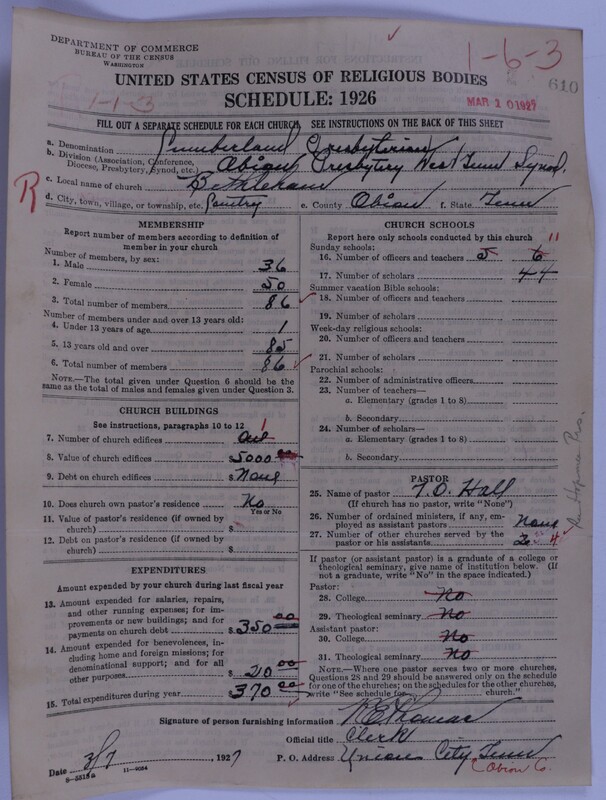 DEPARTMENT OF COMMERCE
BUREAU OF THE CENSUS
WASHINGTON
1-6-3
610
1-1-3
MAR 10 1927
UNITED STATES CENSUS OF RELIGIOUS BODIES
SCHEDULE: 1926
FILL OUT A SEPARATE SCHEDULE FOR EACH CHURCH. SEE INSTRUCTIONS ON THE BACK OF THIS SHEET
a. Denomination Cumberland Presbyterian
b. Division (Association, Conference, Diocese, Presbytery, Synod, etc.) Obion Presbytery West Tenn Synod.
c. Local name of church Bethleham
R
d. City, town, village, or township, etc. Country e. County Obion f. State Tenn
MEMBERSHIP
Report number of members according to definition of member in your church
Number of members, by sex:
1. Male 36
2. Female 50
3. Total number of members 86
Number of members under and over 13 years old:
4. Under 13 years of age 1
5. 13 years old and over 85
6. Total number of members 86
NOTE.—The total given under Question 6 should be the same as the total of males and females given under Question 3.
CHURCH BUILDINGS
See instructions, paragraphs 10 to 12
7. Number of church edifices One 1
8. Value of church edifices $5000.00
9. Debt on church edifices $ None
10. Does church own pastor's residence No
Yes or No
11. Value of pastor's residence (if owned by church) $
12. Debt on pastor's residence (if owned by church) $
EXPENDITURES
Amount expended by your church during last fiscal year
13. Amount expended for salaries, repairs, and other running expenses; for improvements or new buildings; and for payments on church debt $350.00
14. Amount expended for benevolences, including home and foreign missions; for denominational support; and for all other purposes $20.00
15. Total expenditures during year $370.00
CHURCH SCHOOLS
Report here only schools conducted by this church 11
Sunday schools:
16. Number of officers and teachers 5 6
17. Number of scholars 44
Summer vacation Bible schools:
18. Number of officers and teachers
19. Number of scholars
Week-day religious schools:
20. Number of officers and teachers
21. Number of scholars
Parochial schools:
22. Number of administrative officers
23. Number of teachers—
a. Elementary (grades 1 to 8)
b. Secondary
24. Number of scholars—
a. Elementary (grades 1 to 8)
b. Secondary
PASTOR
25. Name of pastor T. O. Hall
(If church has no pastor, write "None")
26. Number of ordained ministers, if any, employed as assistant pastors None
27. Number of other churches served by the pastor or his assistants 4
If pastor (or assistant pastor) is a graduate of a college or theological seminary, give name of institution below. (If not a graduate, write "No" in the space indicated.)
Pastor:
28. College No
29. Theological seminary No
Assistant pastor:
30. College No
31. Theological seminary No
NOTE.—Where one pastor serves two or more churches, Questions 28 and 29 should be answered only on the schedule for one of the churches; on the schedules for the other churches, write "See schedule for church."
Signature of person furnishing information Thomas
Official title Clerk
Date 3/7, 1927 P. O. Address Union City Tenn
Obion C.
8-5315a 11-9034